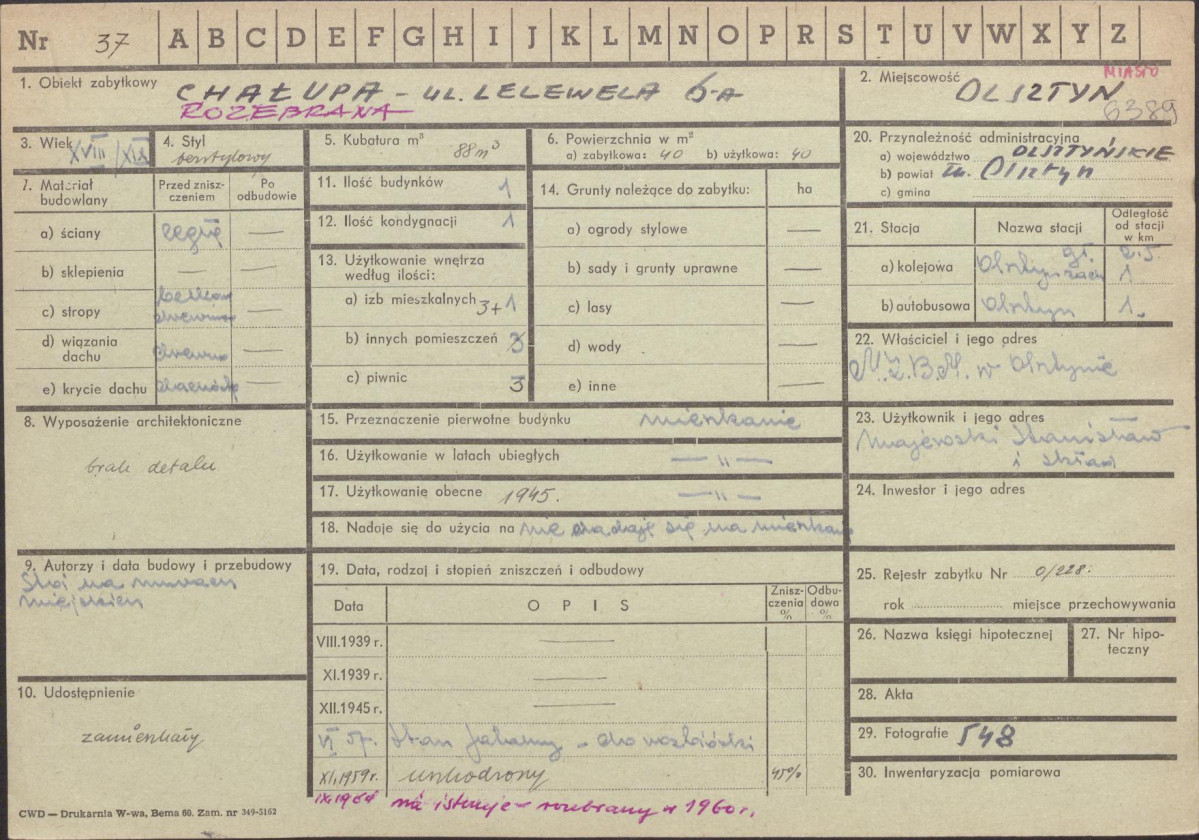 Nr 37 A B C D E F G H I J K L M N O P R S T U V W X Y Z
1. Obiekt zabytkowy CHAŁUPA - UL. LELEWELA 6-A
ROZEBRANA
2. Miejscowość MIASTO
OLSZTYN
6389
3. Wiek XVIII/XIX
4. Styl bezstylowy
5. Kubatura m³ 88 m³
6. Powierzchnia w m²
a) zabytkowa: 40 b) użytkowa: 40
7. Materiał budowlany
Przed zniszczeniem
Po odbudowie
a) ściany cegła —
b) sklepienia — —
c) stropy drewniane —
d) wiązania dachu —
e) krycie dachu dachówka —
8. Wyposażenie architektoniczne
brak detalu
9. Autorzy i data budowy i przebudowy
Stoi na murach
miejskich
10. Udostępnienie
zamieszkały
11. Ilość budynków 1
12. Ilość kondygnacji 1
13. Użytkowanie wnętrza według ilości:
a) izb mieszkalnych 3+1
b) innych pomieszczeń 3
c) piwnic 3
14. Grunty należące do zabytku: ha
a) ogrody stylowe —
b) sady i grunty uprawne —
c) lasy —
d) wody —
e) inne —
15. Przeznaczenie pierwotne budynku mieszkanie
16. Użytkowanie w latach ubiegłych — „ —
17. Użytkowanie obecne 1945. — „ —
18. Nadaje się do użycia na nie nadaje się na mieszkanie
19. Data, rodzaj i stopień zniszczeń i odbudowy
Data OPIS Zniszczenia % Odbudowa %
VIII.1939 r. —
XI.1939 r. —
XII.1945 r. —
VI 57. Stan - do rozbiórki
XI.1959 r. uszkodzony 45%
IX.1964 nie istnieje - rozebrany w 1960 r.
20. Przynależność administracyjna
a) województwo OLSZTYŃSKIE
b) powiat m. Olsztyn
c) gmina
21. Stacja Nazwa stacji Odległość od stacji w km
a) kolejowa Olsztyn gł. 2.5
zach 1
b) autobusowa Olsztyn 1.
22. Właściciel i jego adres
M.Z.B.M. w Olsztynie
23. Użytkownik i jego adres
Majewski Stanisław
i skład
24. Inwestor i jego adres
25. Rejestr zabytku Nr 0/228.
rok miejsce przechowywania
26. Nazwa księgi hipotecznej
27. Nr hipoteczny
28. Akta
29. Fotografie 548
30. Inwentaryzacja pomiarowa
CWD — Drukarnia W-wa, Bema 60. Zam. nr 349-5162